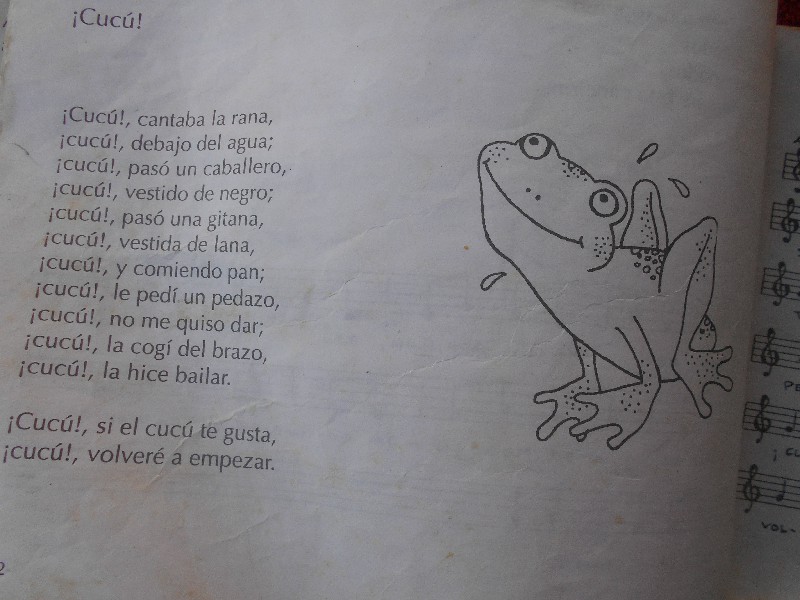 ¡Cucú!
¡Cucú!, cantaba la rana,
¡cucú!, debajo del agua;
¡cucú!, pasó un caballero,
¡cucú!, vestido de negro;
¡cucú!, pasó una gitana,
¡cucú!, vestida de lana,
¡cucú!, y comiendo pan;
¡cucú!, le pedí un pedazo,
¡cucú!, no me quiso dar;
¡cucú!, la cogí del brazo,
¡cucú!, la hice bailar.
¡Cucú!, si el cucú te gusta,
¡cucú!, volveré a empezar.
2
PE
¡ CU
VOL-